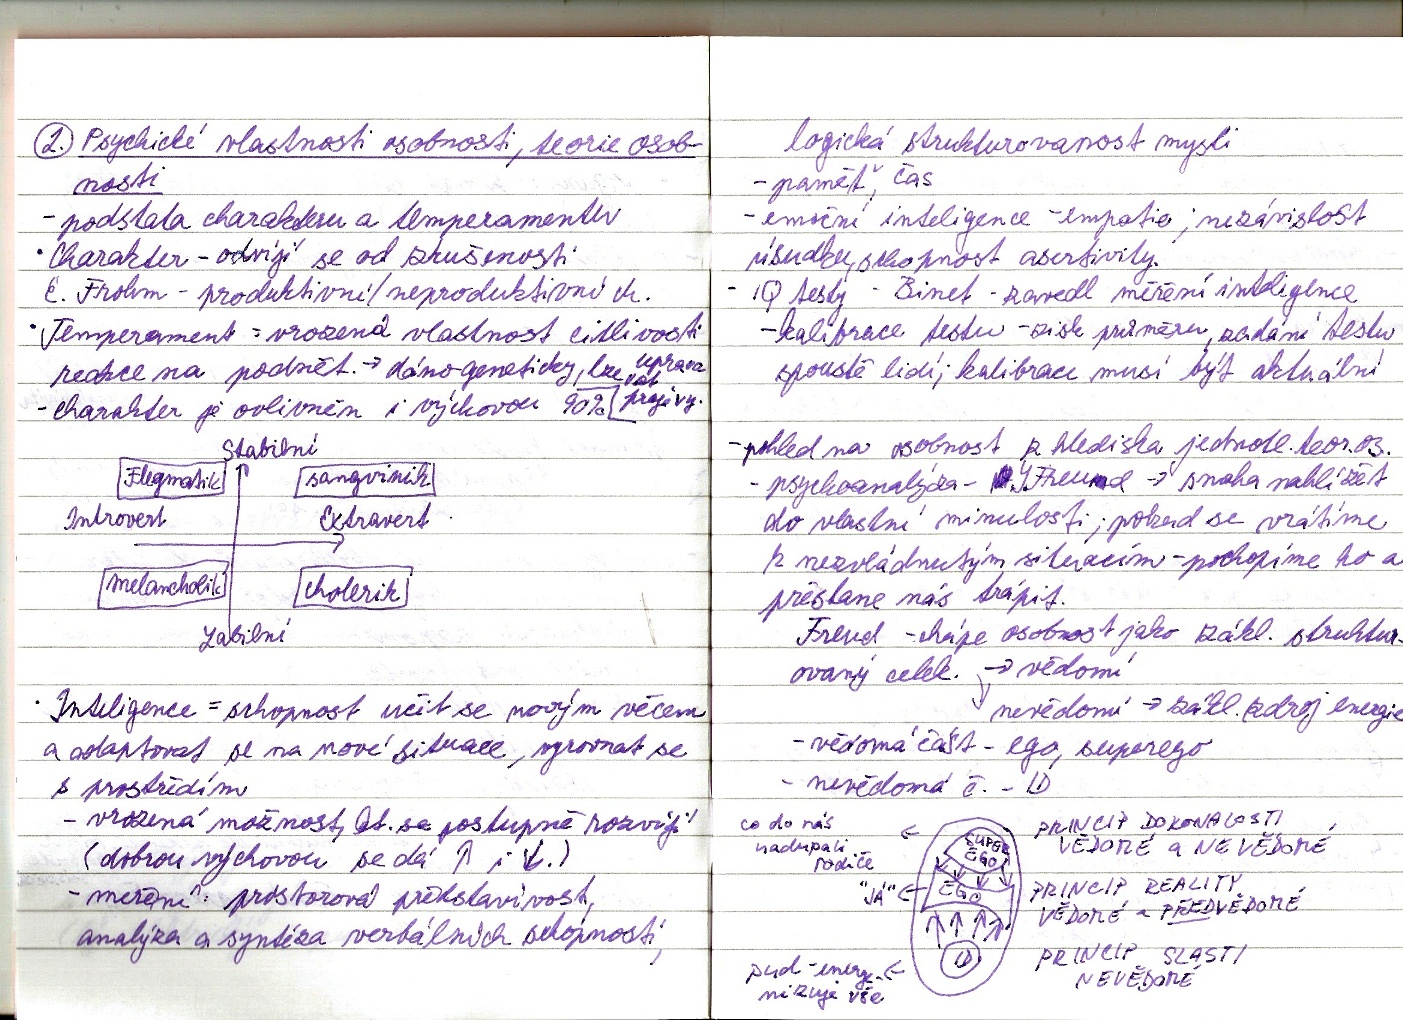 2. Psychické vlastnosti osobnosti, teorie osob-
nosti
- podstata charakteru a temperamentu
• Charakter - odvíjí se od zkušenosti
E. Frohm - produktivní/neproduktivní ch.
• Temperament = vrozená vlastnost citlivosti
reakce na podnět. → dáno geneticky, lze upravovat
- charakter je ovlivněn i výchovou 90% projevy.
Stabilní
Flegmatik
sangvinik
Introvert
Extravert
melancholik
cholerik
Labilní
• Inteligence = schopnost učit se novým věcem
a adaptovat se na nové situace, vyrovnat se
s prostředím
- vrozená možnost, kt. se postupně rozvíjí
(dobrou výchovou se dá ↑ i ↓.)
- měření: prostorová představivost,
analýza a syntéza verbálních schopností,
logická strukturovanost mysli
- paměť, čas
- emoční inteligence - empatie; nezávislost
úsudku, schopnost asertivity.
- IQ testy - Binet - zavedl měření inteligence
- kalibrace testu - zisk průměru, zadání testu
spoustě lidí; kalibrace musí být aktuální
- pohled na osobnost z hlediska jednotl. teor. os.
- psychoanalýza - Freud → snaha nahlížet
do vlastní minulosti; pokud se vrátíme
k nezvládnutým situacím - pochopíme ho a
přestane nás trápit.
Freud - chápe osobnost jako zákl. struktur-
ovaný celek. → vědomí
nevědomí → zákl. zdroj energie
- vědomá část - ego, superego
- nevědomá č. - ID
co do nás
nadupali
rodiče
SUPER
EGO
PRINCIP DOKONALOSTI
VĚDOMÉ a NEVĚDOMÉ
"JÁ" ←
EGO
PRINCIP REALITY
VĚDOMÉ a PŘEDVĚDOMÉ
pud - energ.
nizuje vše
ID
PRINCIP SLASTI
NEVĚDOMÉ